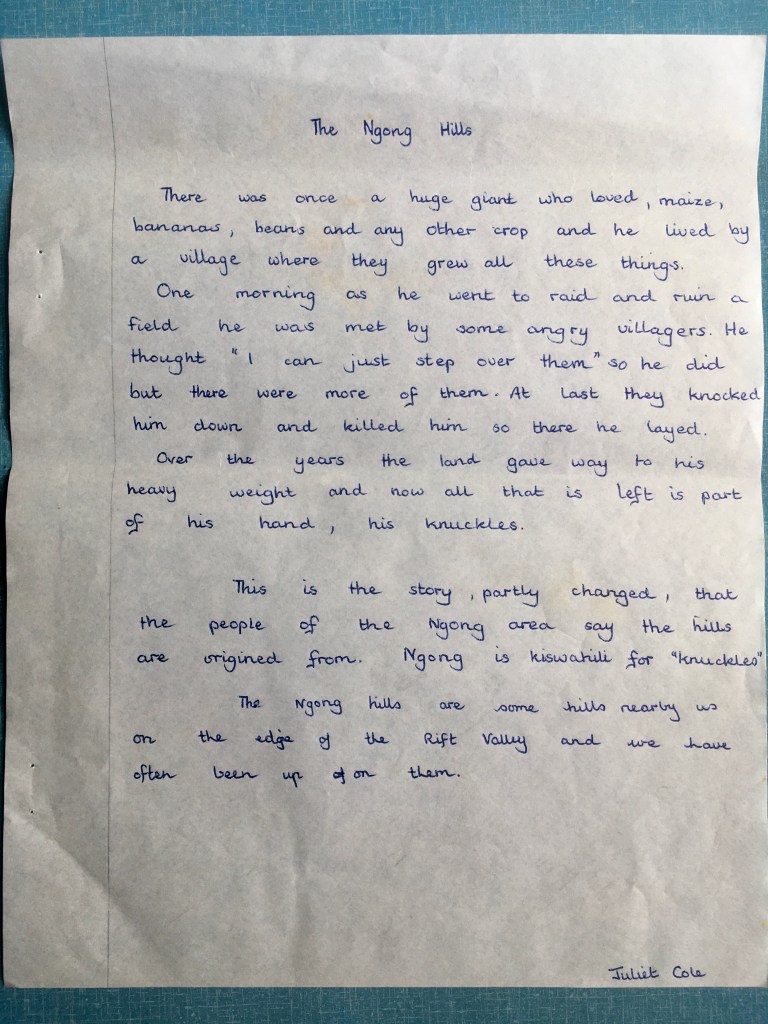 The Ngong Hills
There was once a huge giant who loved, maize,
bananas, beans and any other crop and he lived by
a village where they grew all these things.
One morning as he went to raid and ruin a
field he was met by some angry villagers. He
thought "I can just step over them" so he did
but there were more of them. At last they knocked
him down and killed him so there he layed.
Over the years the land gave way to his
heavy weight and now all that is left is part
of his hand, his knuckles.
This is the story, partly changed, that
the people of the Ngong area say the hills
are origined from. Ngong is kiswahili for "knuckles"
The Ngong hills are some hills nearby us
on the edge of the Rift Valley and we have
often been up on them.
Juliet Cole